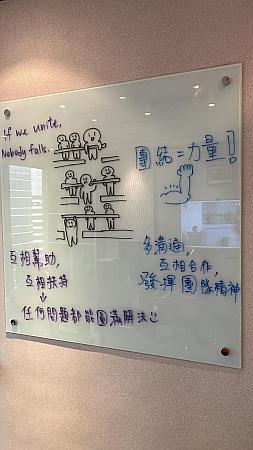 if we unite,
Nobody falls.
團結=力量!
互相幫助,
互相扶持
↓
任何問題都能圓滿解決
多溝通,
互相合作,
發揮團隊精神